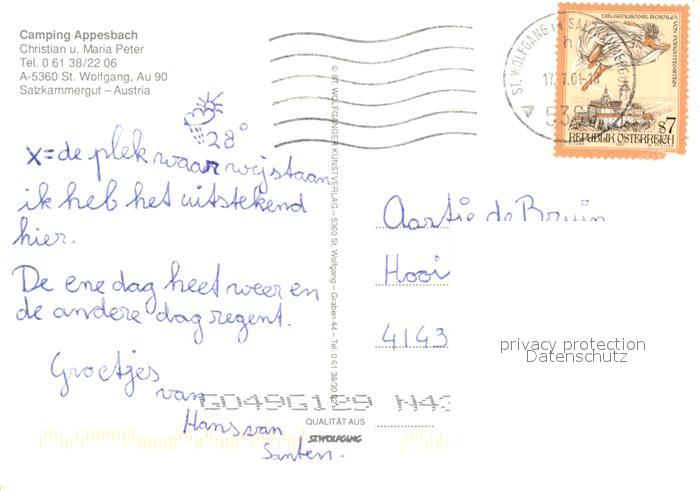 Camping Appesbach
Christian u. Maria Peter
Tel. 0 61 38/22 06
A-5360 St. Wolfgang, Au 90
Salzkammergut – Austria
28°
x = de plek waar wij staan
ik heb het uitstekend
hier.
De ene dag heet weer en
de andere dag regent.
Groetjes
van
Hans van
Santen.
© ST. WOLFGANGER KUNSTVERLAG – 5360 St. Wolfgang – Graben 44 – Tel. 0 61 38/30
QUALITÄT AUS
ST.WOLFGANG
GD49G129 N43
ST. WOLFGANG IM SALZKAMMERGUT
17.7.01-18
5360
DIE GRAUSAME ROSALIA
VON FORCHTENSTEIN
S7
REPUBLIK ÖSTERREICH
Aartie de Bruin
Hooi
4143
privacy protection
Datenschutz